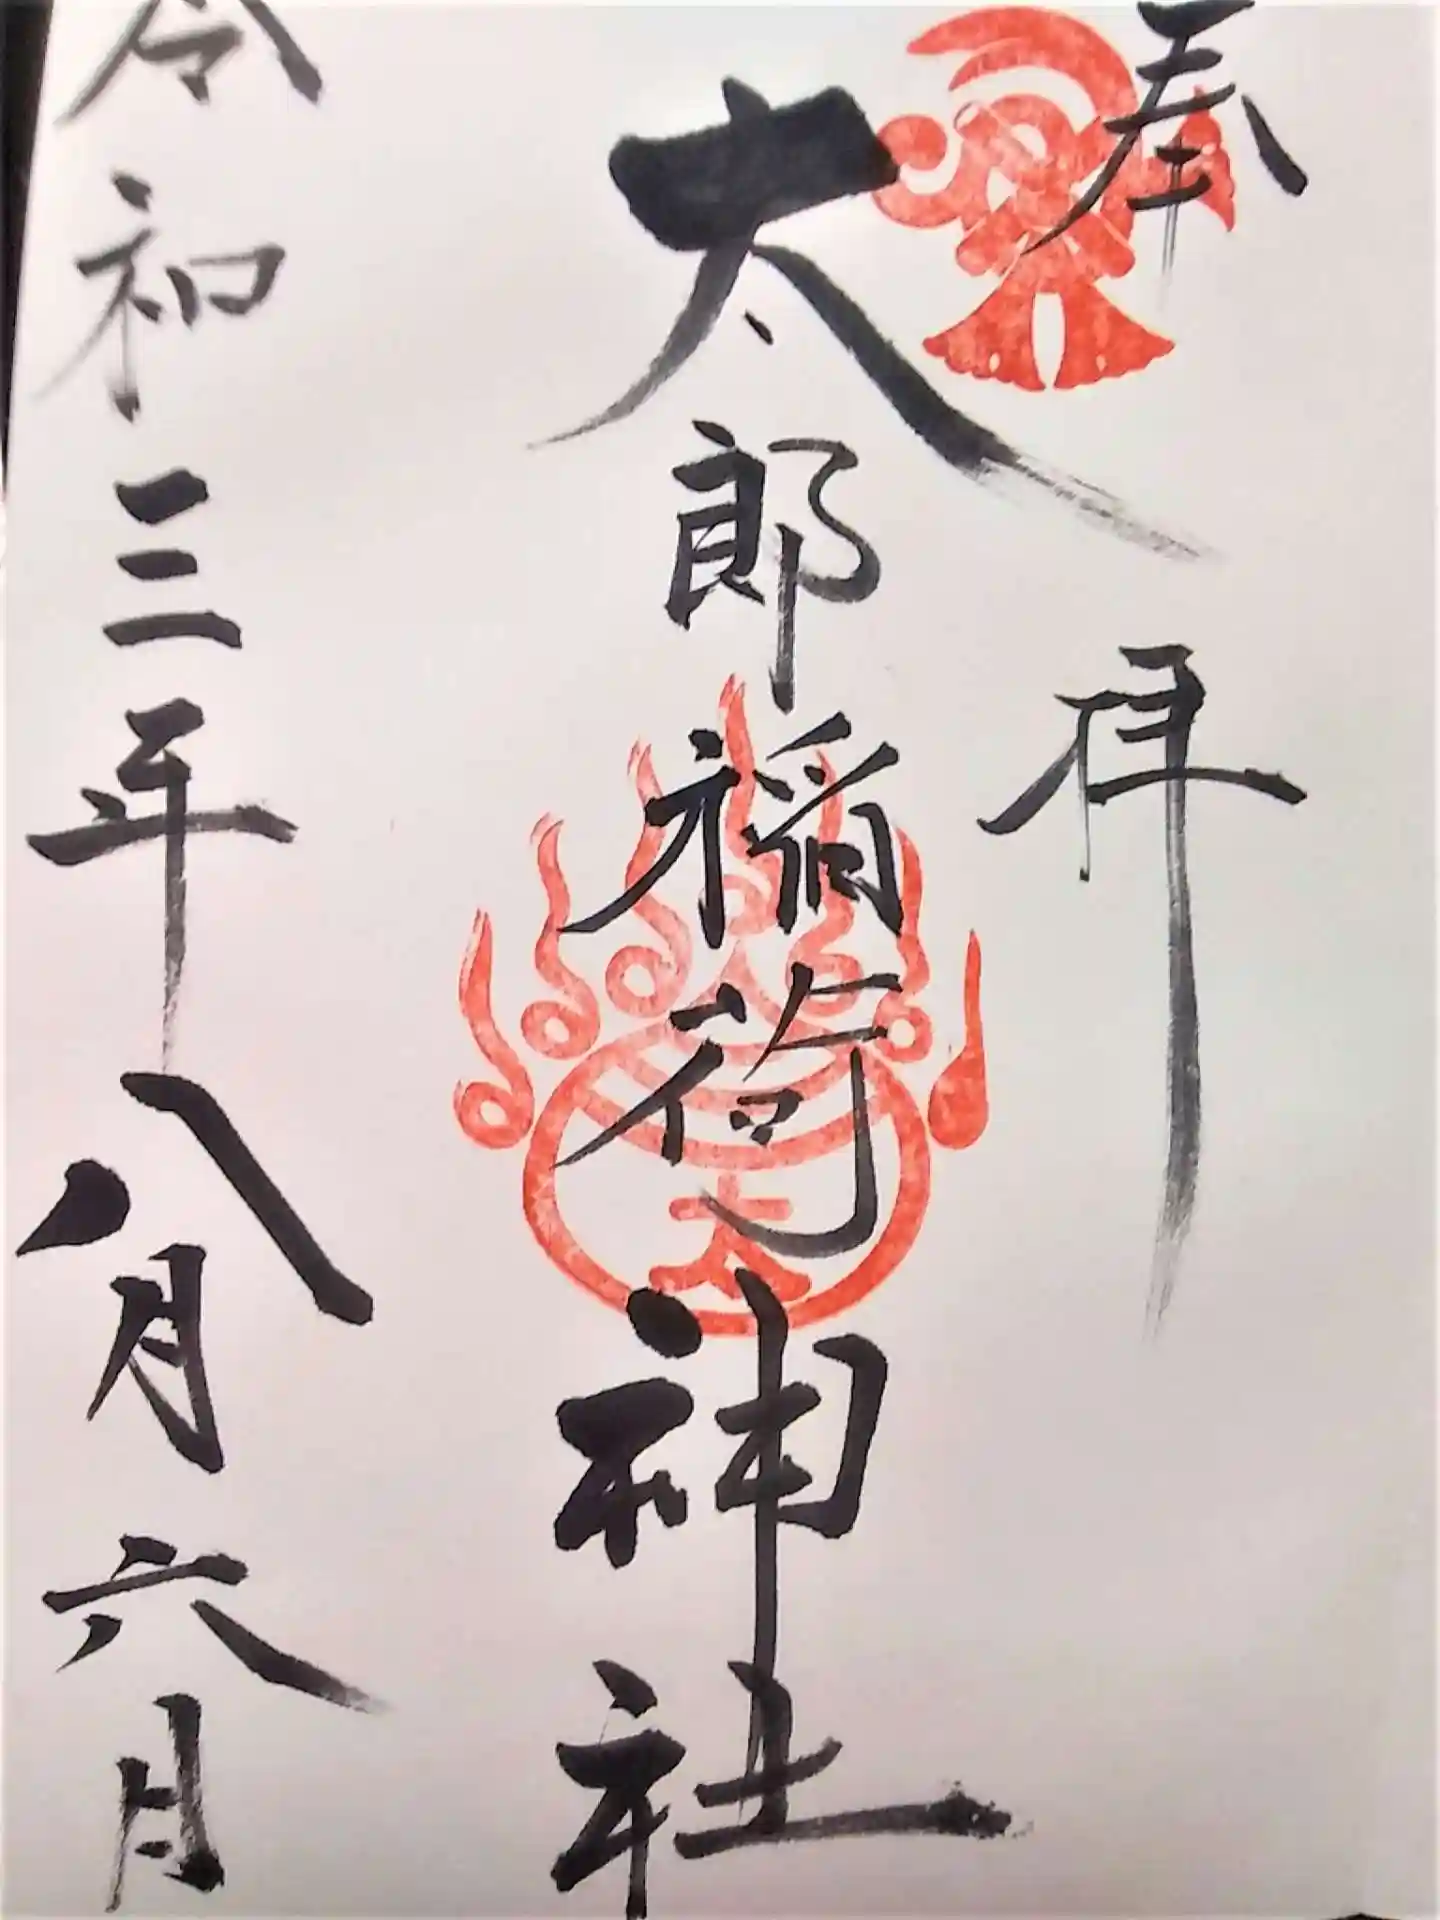 奉拝
太郎稲荷神社
太
令和三年八月六日